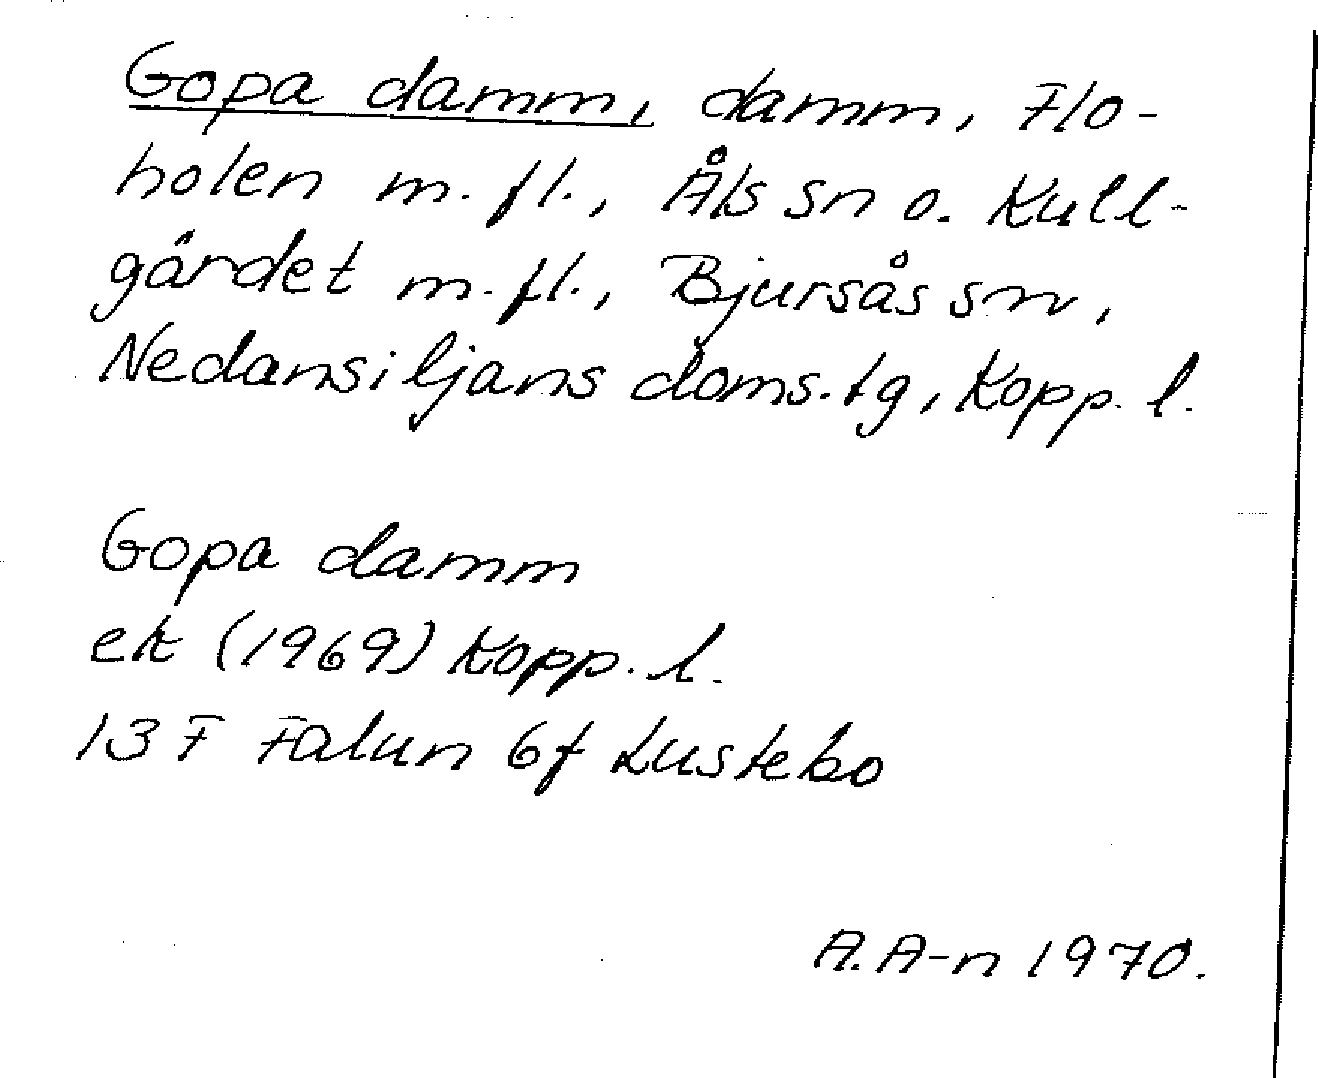 Gopa damm, damm, Flo-
holen m.fl., Åls sn o. Kull-
gärdet m.fl., Bjursås sn,
Nedansiljans doms.tg, Kopp. l.
Gopa damm
ek (1969) Kopp. l.
13 F Falun 6f Lustebo
A. A-n 1970.